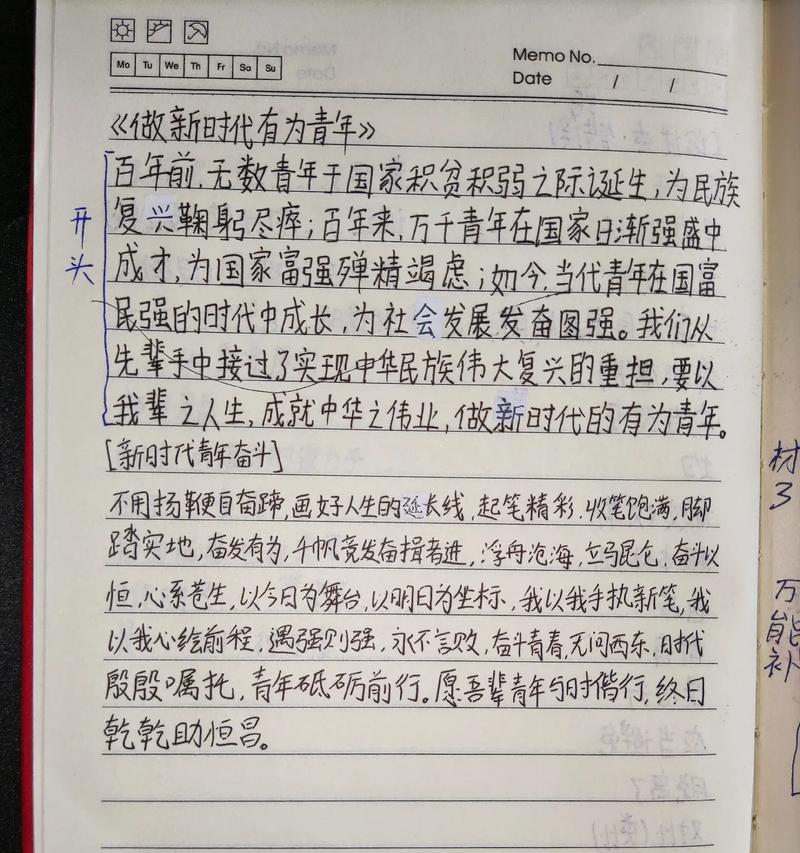 Mo Tu We Th Fr Sa Su
Memo No.
Date / /
《做新时代有为青年》
开头
百年前,无数青年于国家积贫积弱之际诞生,为民族
复兴鞠躬尽瘁;百年来,万千青年在国家日渐强盛中
成才,为国家富强殚精竭虑;如今,当代青年在国富
民强的时代中成长,为社会发展发奋图强。我们从
先辈手中接过了实现中华民族伟大复兴的重担,要以
我辈之人生,成就中华之伟业,做新时代的有为青年。
[新时代青年奋斗]
不用扬鞭自奋蹄,画好人生的延长线,起笔精彩,收笔饱满,脚
踏实地,奋发有为,千帆竞发奋揖者进,浮舟沧海,立马昆仑,奋斗以
恒,心系苍生,以今日为舞台,以明日为坐标,我以我手执新笔,我
以我心绘前程,遇强则强,永不言败,奋斗青春,无问西东,时代
殷殷嘱托,青年砥砺前行。愿吾辈青年与时偕行,终日
乾乾助恒昌。
材
3
万
能
补